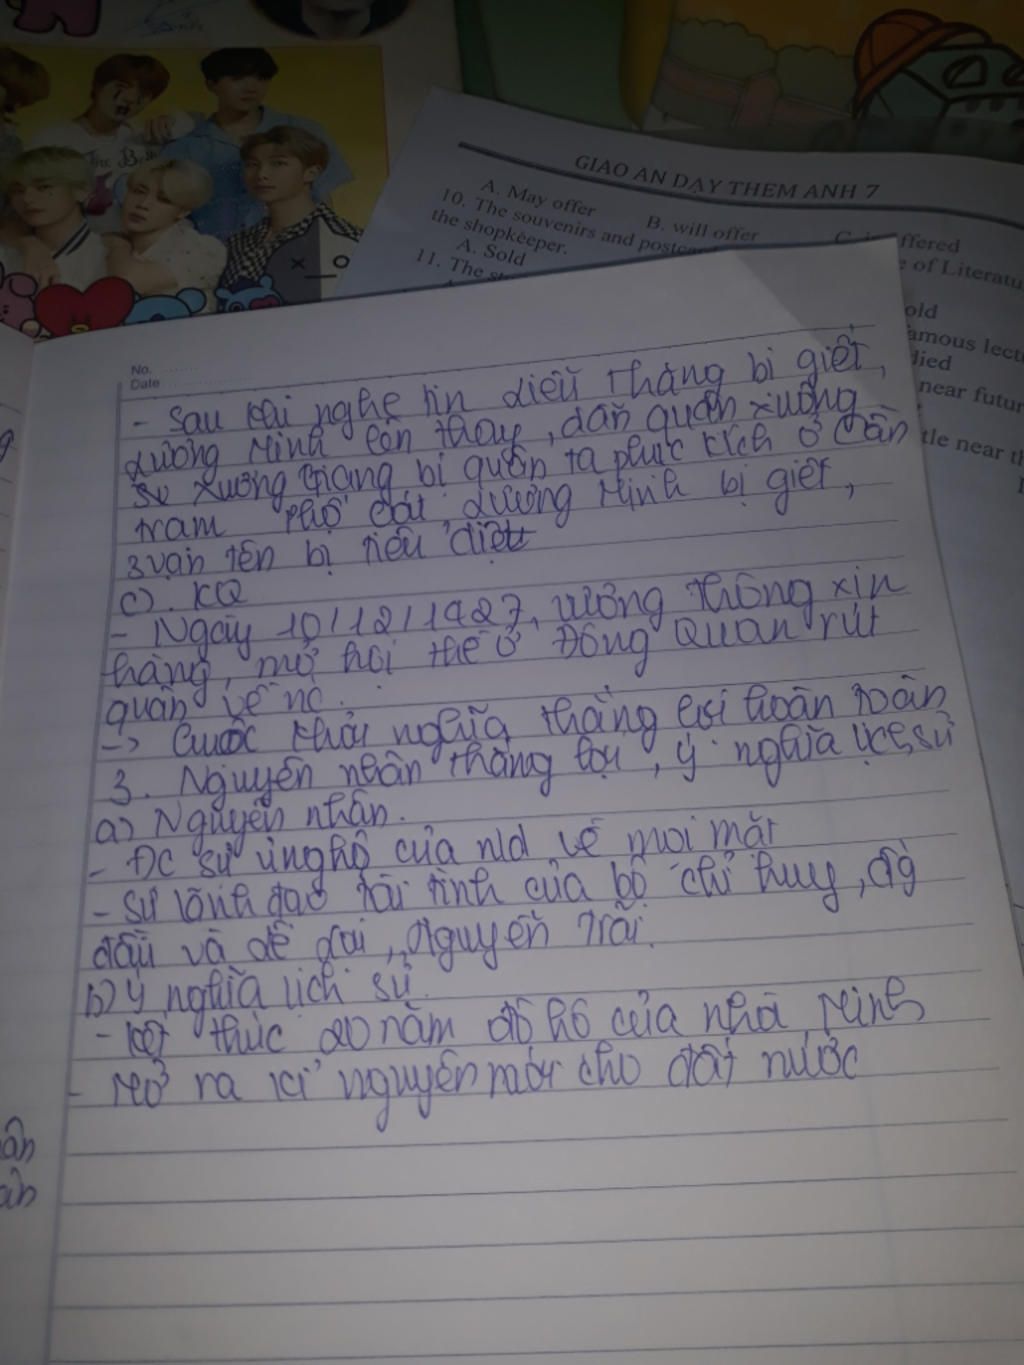 GIAO AN DAY THEM ANH 7
A. May offer B. will offer ffered
10. The souvenirs and postca
the shopkeeper. e of Literatu
A. Sold old
11. The
amous lectu
died
near futur
tle near th
The Best
No.
Date
- Sau khi nghe tin Liễu Thăng bị giết,
Lương Minh lên thay, dẫn quân xuống
Xương Giang bị quân ta phục kích ở Cần
Trạm Phố Cát Lương Minh bị giết,
3 vạn tên bị tiêu diệt
c). KQ
- Ngày 10/12/1427, Vương Thông xin
hàng, mở hội thề ở Đông Quan rút
quân về nc.
-> Cuộc khởi nghĩa thắng lợi hoàn toàn
3. Nguyên nhân thắng lợi, ý nghĩa lịch sử
a) Nguyên nhân.
- ĐC sự ủng hộ của nld về mọi mặt
- Sự lãnh đạo tài tình của bộ chỉ huy, đg
đầu và để đại, Nguyễn Trãi.
b) ý nghĩa lịch sử
- Kết thúc 20 năm đô hộ của nhà Minh
- Mở ra kỉ nguyên mới cho đất nước